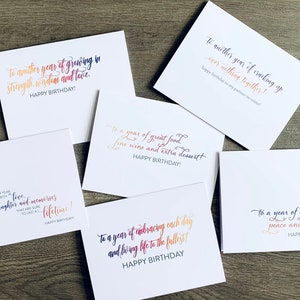 to another year of growing in
strength, wisdom and love.
HAPPY BIRTHDAY!
to another year of cracking up
over nothing together!
to a year of great food,
fine wine and extra dessert.
HAPPY BIRTHDAY!
love,
laughter and memories
lifetime!
to a year of embracing each day
and living life to the fullest!
HAPPY BIRTHDAY
to a year of
peace and